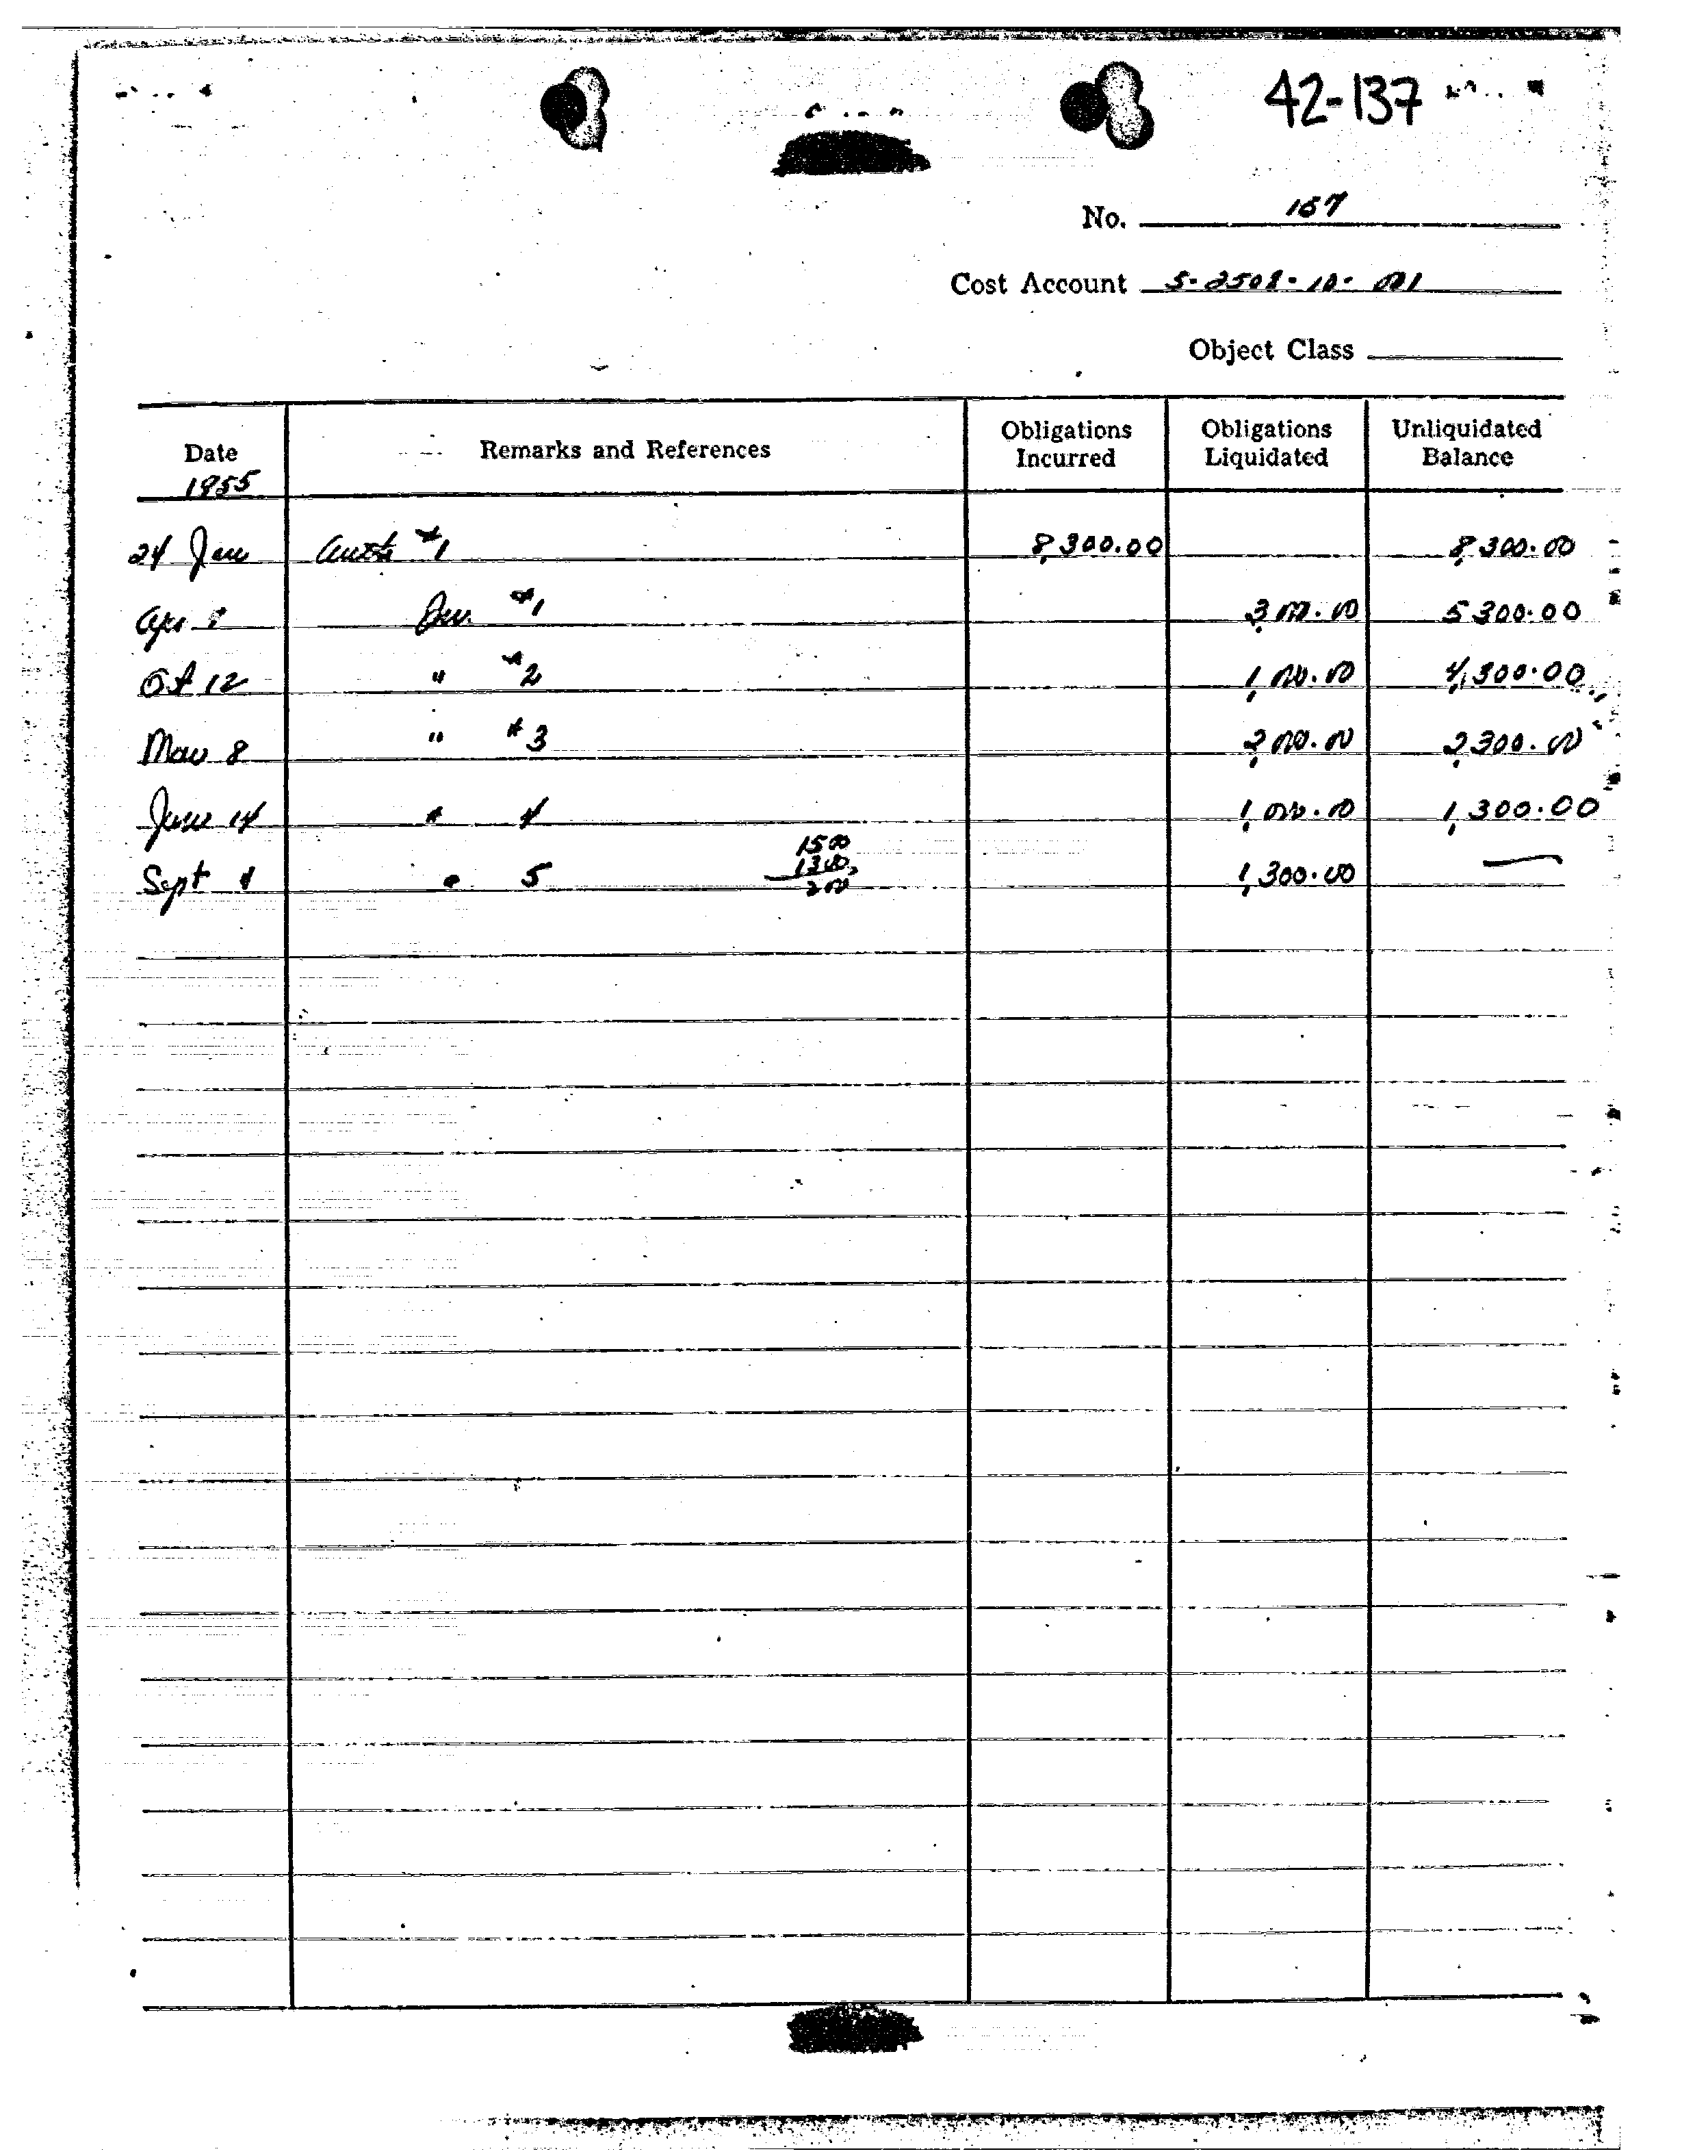 42-137
No. 157
Cost Account 5-2508-10-001
Object Class
Date 1955 Remarks and References Obligations Incurred Obligations Liquidated Unliquidated Balance
24 Jan Auth #1 8,300.00 8,300.00
Apr Inv. #1 3,000.00 5300.00
Oct 12 " #2 1,000.00 4,300.00
Mar 8 " #3 2,000.00 2,300.00
June 14 " 4 1,000.00 1,300.00
1500
1300
200
Sept " 5 1,300.00 —